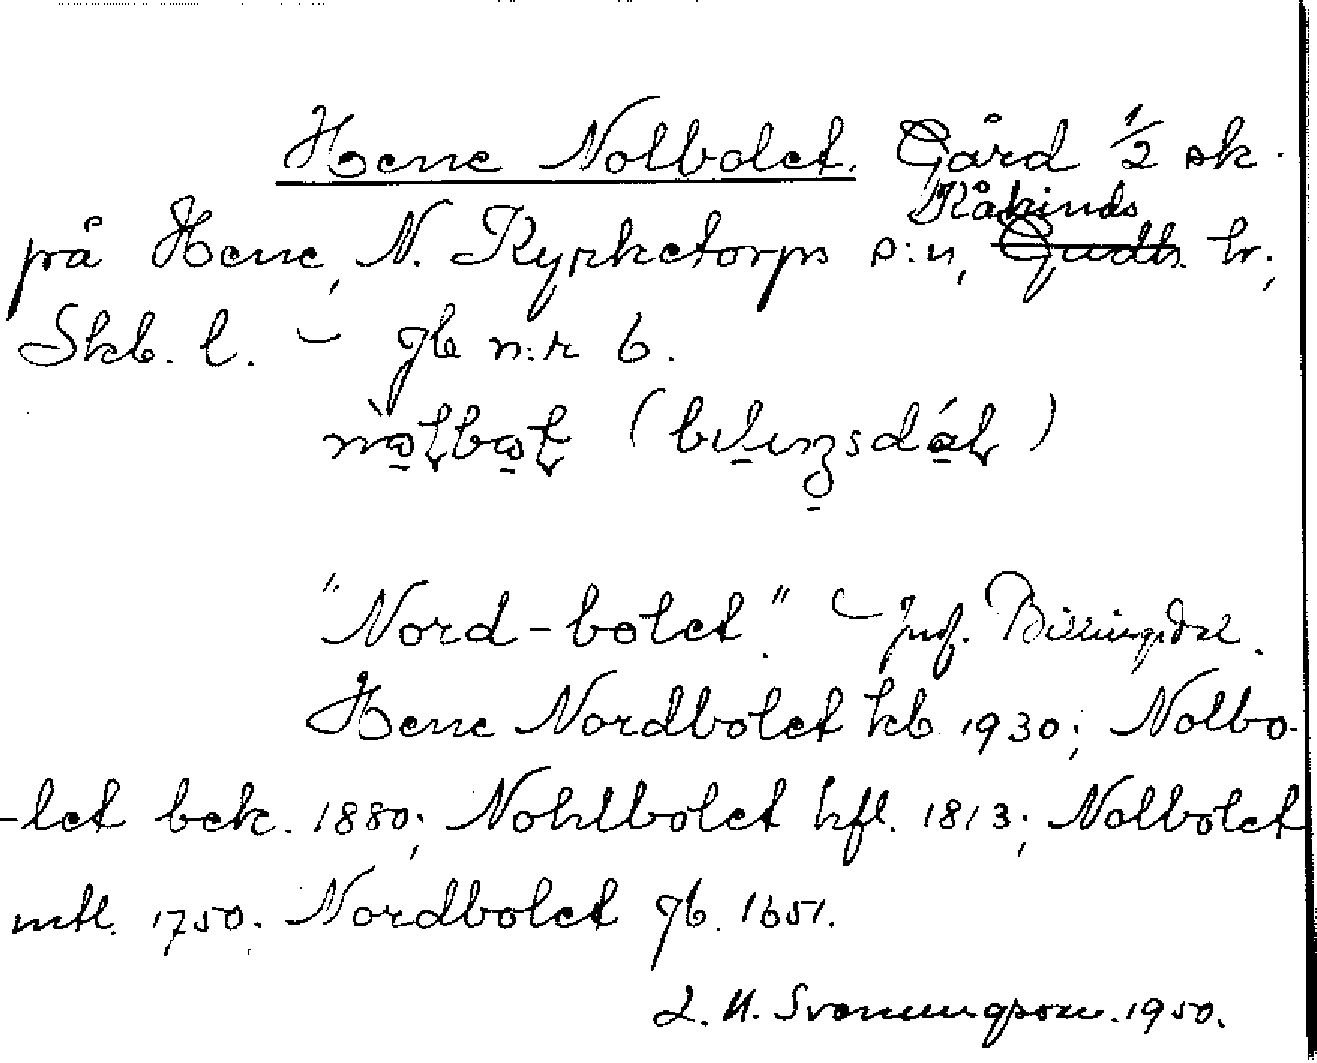 Hene Nolbolet. Gård 1/2 sk.
på Hene, N. Kyrketorps s:n, Kåkinds Gudh. hr.,
Skb. l. – Jb n:r 6.
"Nord-bolet." – Inf. Billingsdal.
Hene Nordbolet kb 1930; Nolbo-
-let bek. 1880; Nohlbolet hfl. 1813; Nolbolet
mtl. 1750. Nordbolet Jb. 1651.
1950.